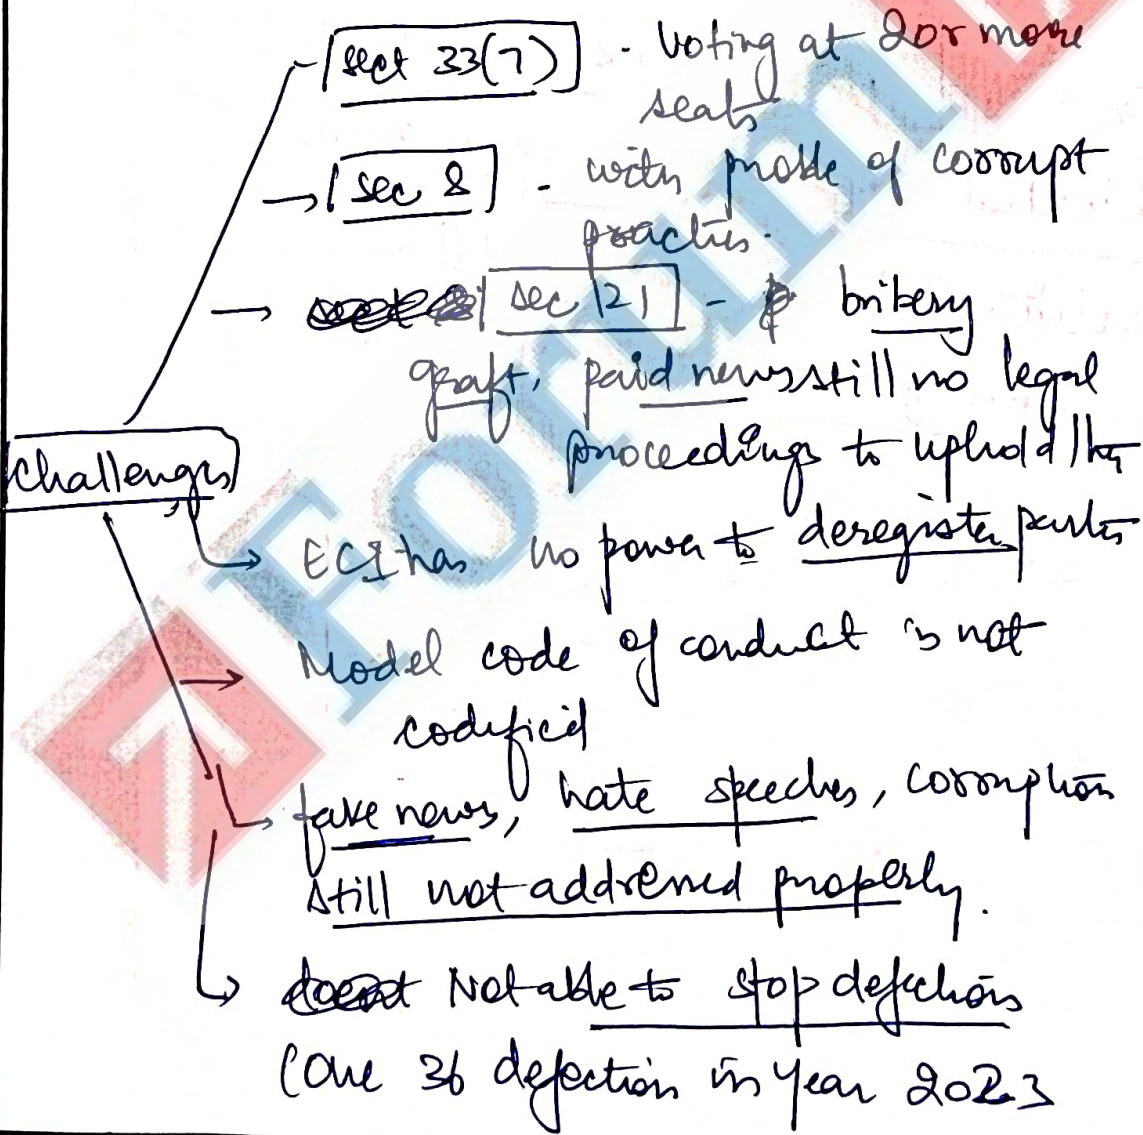 sect 33(7) - Voting at 2 or more
seats
→ sec 8 - with probe of corrupt
practies.
→ sec 121 - bribery
graft, paid news still no legal
proceedings to uphold
challenges
→ ECI has no power to deregister parties
→ Model code of conduct is not
codificid
→ fake news, hate speeches, corruption
still not addressed properly.
→ Not able to stop defections
36 defection in year 2023
Forum